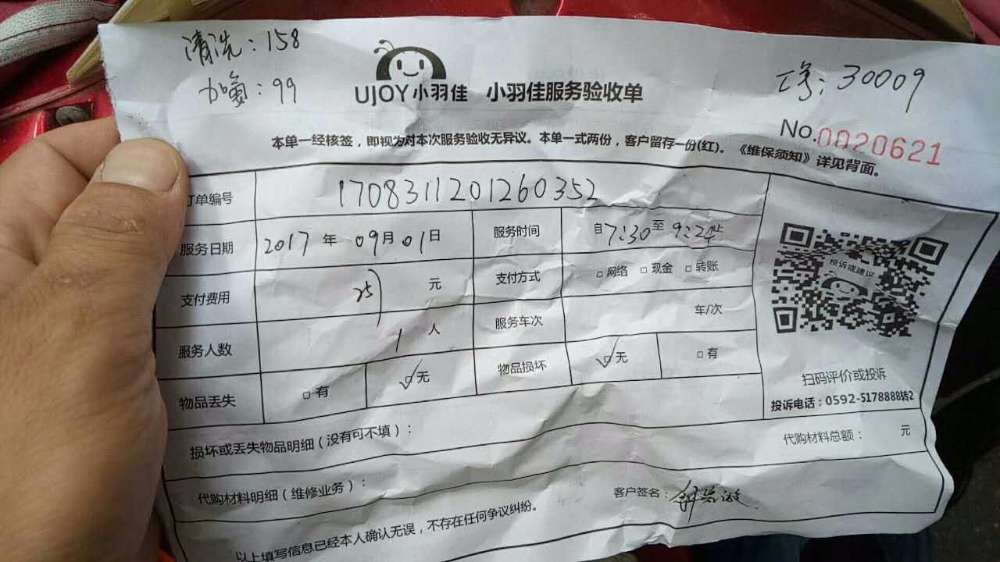 清洗：158
加氟：99
UJOY小羽佳 小羽佳服务验收单
工号：30009
No.0020621
本单一经核签，即视为对本次服务验收无异议。本单一式两份，客户留存一份(红)。《维保须知》详见背面。
订单编号 1708311201260352
服务日期 2017年09月01日 服务时间 自7:30至9:2
支付费用 元 支付方式 □网络 □现金 □转账
服务人数 1人 服务车次 车/次
物品丢失 □有 ☑无 物品损坏 ☑无 □有
投诉或建议
扫码评价或投诉
投诉电话：0592-5178888转2
损坏或丢失物品明细（没有可不填）：
代购材料总额： 元
代购材料明细（维修业务）：
客户签名：
以上填写信息已经本人确认无误，不存在任何争议纠纷。